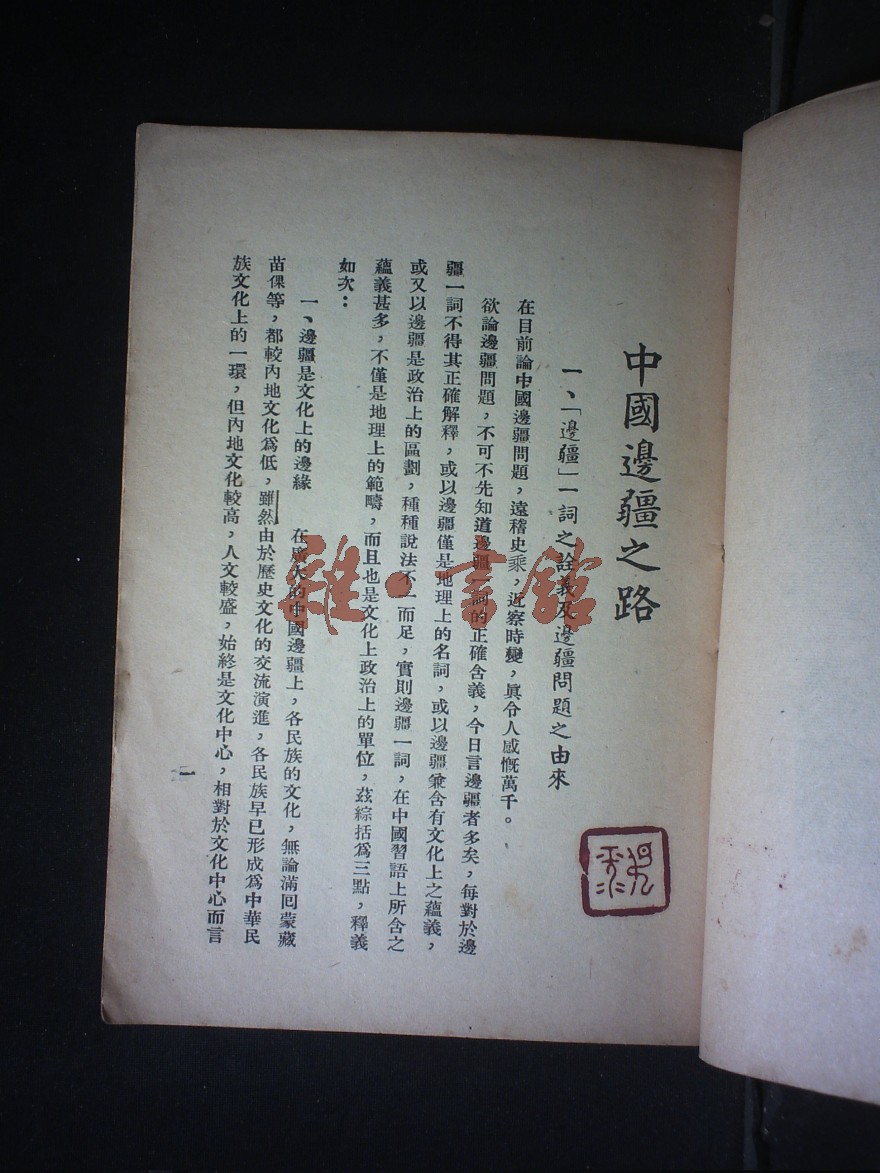 中國邊疆之路
一、「邊疆」一詞之詮義及邊疆問題之由來
在目前論中國邊疆問題，遠稽史乘，近察時變，眞令人感慨萬千。
欲論邊疆問題，不可不先知道邊疆一詞的正確含義，今日言邊疆者多矣，每對於邊
疆一詞不得其正確解釋，或以邊疆僅是地理上的名詞，或以邊疆兼含有文化上之蘊義，
或又以邊疆是政治上的區劃，種種說法不一而足，實則邊疆一詞，在中國習語上所含之
蘊義甚多，不僅是地理上的範疇，而且也是文化上政治上的單位，茲綜括爲三點，釋義
如次：
一、邊疆是文化上的邊緣　在廣大的中國邊疆上，各民族的文化，無論滿回蒙藏
苗倮等，都較內地文化爲低，雖然由於歷史文化的交流演進，各民族早已形成爲中華民
族文化上的一環，但內地文化較高，人文較盛，始終是文化中心，相對於文化中心而言
一
雜·書館